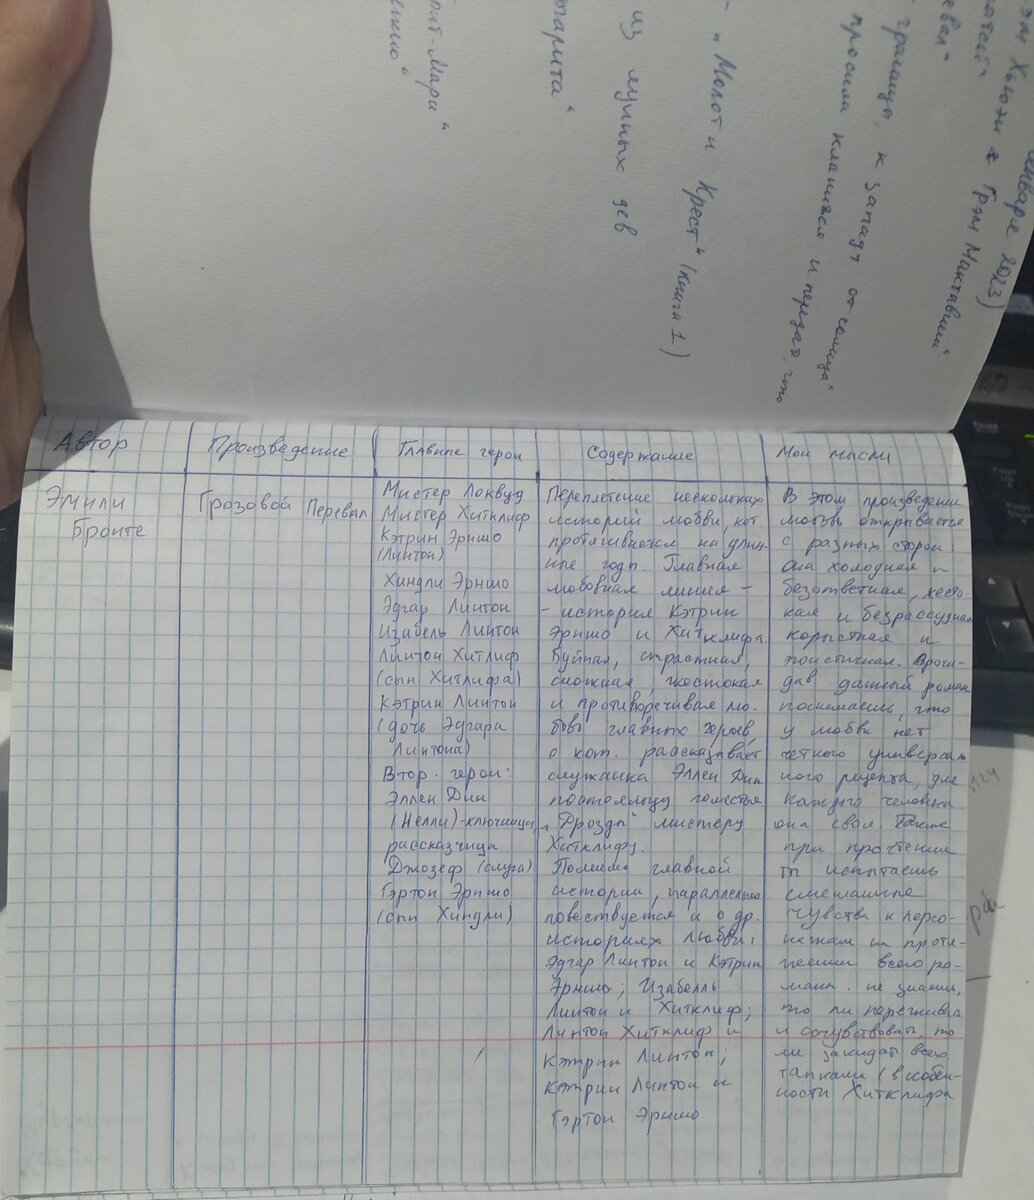 января 2023)
Хьюэн & Грэм Мактавиш"
граница, к западу от солнца"
просила кланяться и передать, что
- „Молот и Крест" (книга 1)
из лунных дев
гарита"
рит. Мари"
Автор
Произведение
Главные герои
Содержание
Мои мысли
Эмили
Бронте
Грозовой Перевал
Мистер Локвуд
Мистер Хитклиф
Кэтрин Эрншо
(Линтон)
Хиндли Эрншо
Эдгар Линтон
Изабель Линтон
Линтон Хитлиф
(сын Хитлифа)
Кэтрин Линтон
(дочь Эдгара
Линтона)
Втор. герои:
Эллен Дин
(Нелли) - ключница,
рассказчица
Джозеф (слуга)
Гэртон Эрншо
(сын Хиндли)
Переплетение нескольких
историй любви, кот.
протягивается на длин-
ные годы. Главная
любовная линия -
- история Кэтрин
Эрншо и Хитклифа.
Буйная, страстная,
сложная, жестокая
и противоречивая лю-
бовь главных героев,
о кот. рассказывает
служанка Эллен Дин
постояльцу поместья
„Дрозды" мистеру
Хитклифу.
Помимо главной
истории, параллельно
повествуется и о др.
историях любви:
Эдгар Линтон и Кэтрин
Эрншо; Изабелль
Линтон и Хитклиф;
Линтон Хитклиф и
Кэтрин Линтон;
Кэтрин Линтон и
Гэртон Эрншо
В этом произведении
любовь открывается
с разных сторон:
она холодная и
безответная, жесто-
кая и безрассудная
корыстная и
эгоистичная. Прочи-
тав данный роман
понимаешь, что
у любви нет
четкого универсаль
ного рецепта, для
каждого человека
она своя. Также
при прочтении
ты испытаешь
смешанные
чувства к персо-
нажам на протя-
жении всего ро-
мана. не знаешь,
то ли переживать
и сочувствовать, то
ли закидать всех
тапками (в особен-
ности Хитклифа